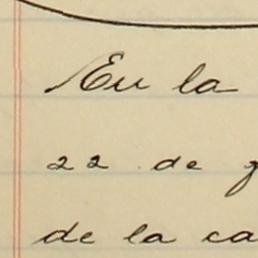 En la
22 de
de la ca